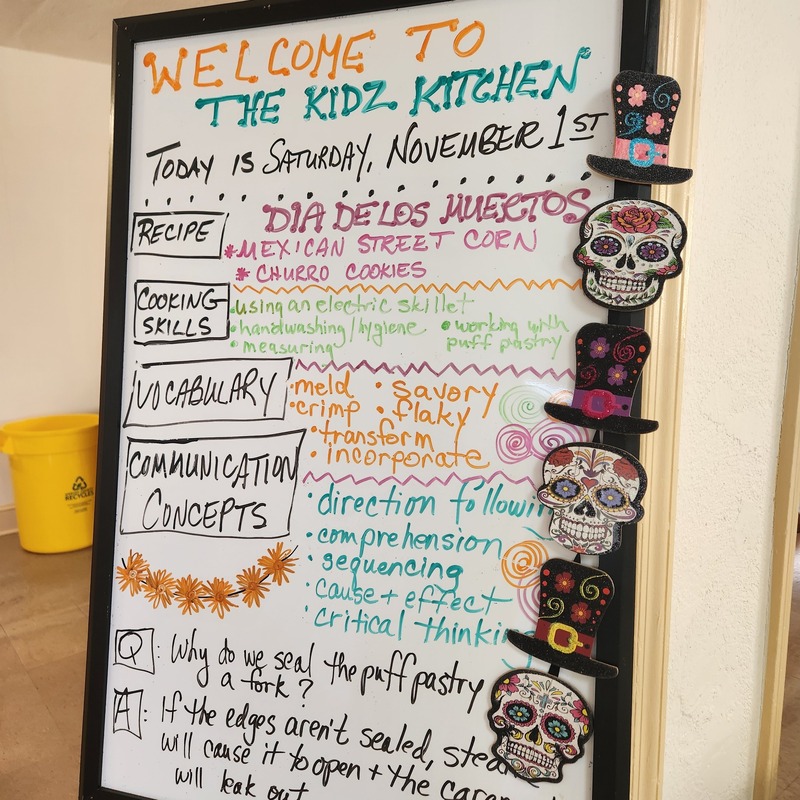 WELCOME TO
THE KIDZ KITCHEN
TODAY IS SATURDAY, NOVEMBER 1ST
DIA DE LOS MUERTOS
RECIPE
* MEXICAN STREET CORN
* CHURRO COOKIES
COOKING SKILLS
• using an electric skillet
• handwashing/hygiene • working with
• measuring puff pastry
VOCABULARY
• meld • savory
• crimp • flaky
• transform
• incorporate
COMMUNICATION
CONCEPTS
• direction
• comprehension
• sequencing
• cause + effect
• critical
Q: Why do we seal the puff pastry
a fork?
A: If the edges aren't sealed,
will cause it to open + the
will leak out